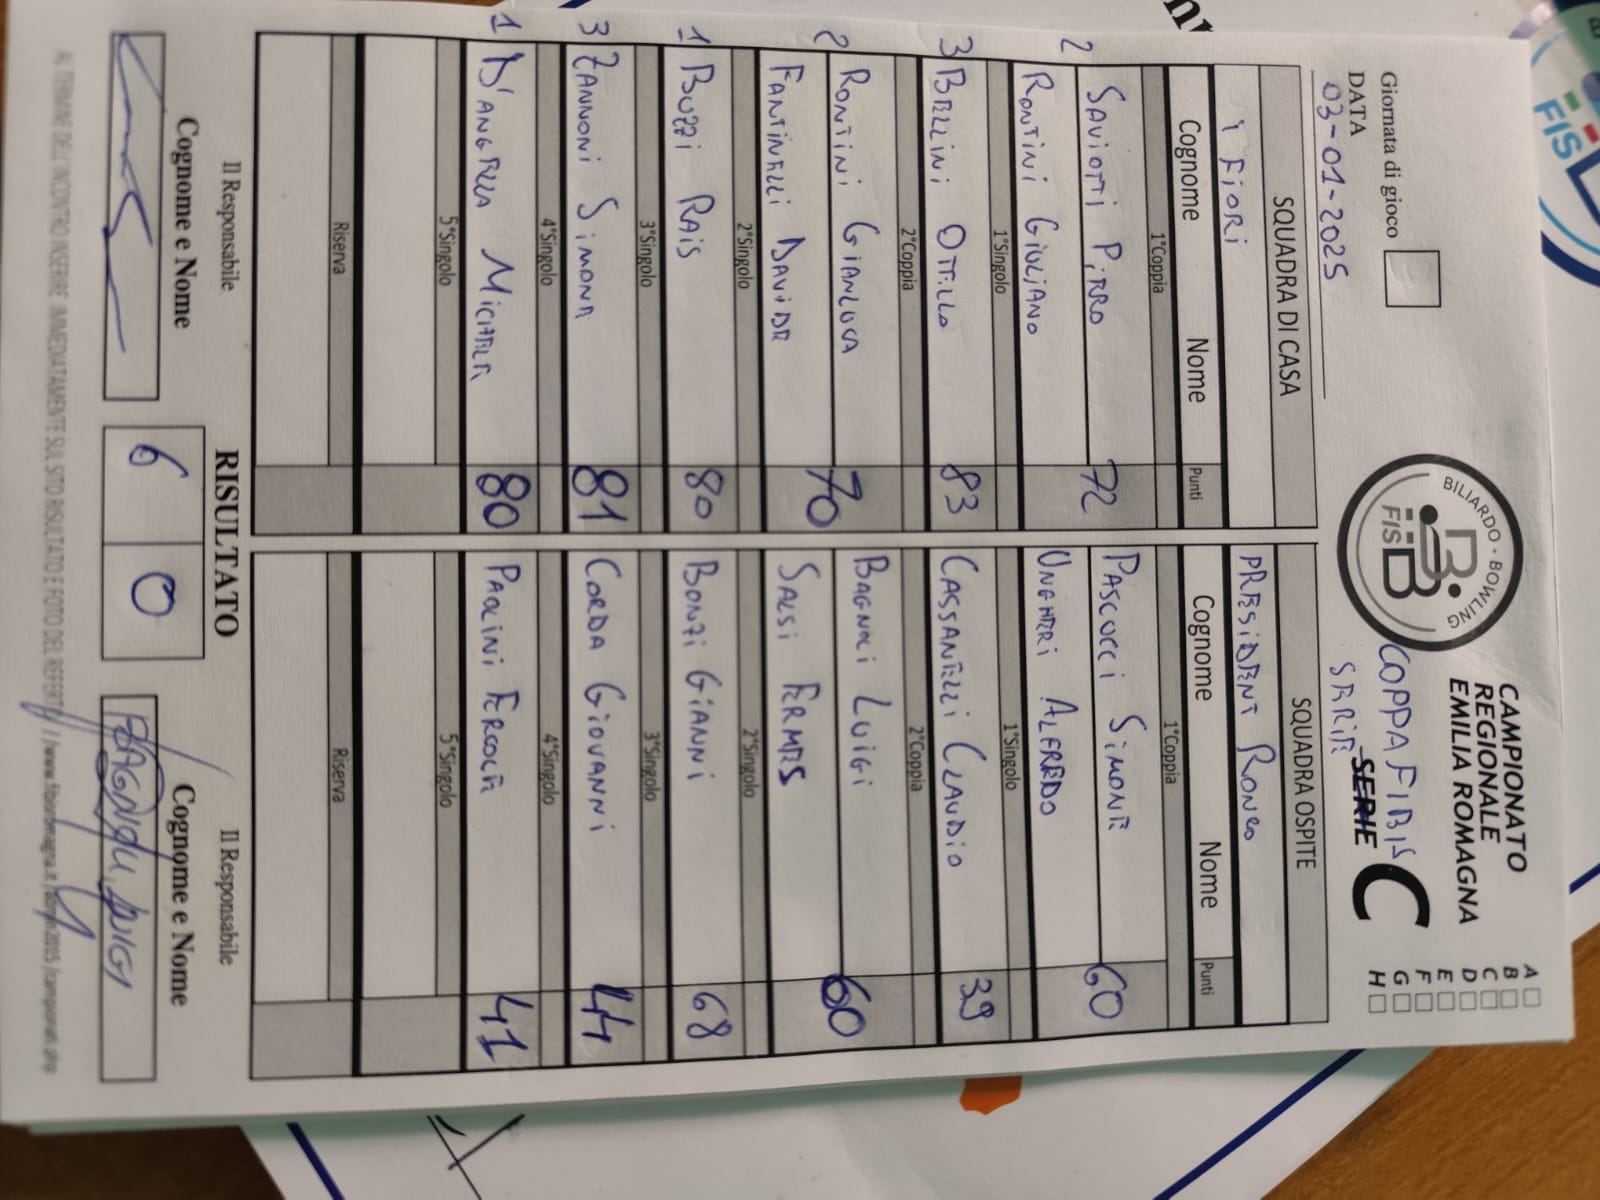 Giornata di gioco
DATA
03-01-2025
BILIARDO · BOWLING
FISBB
COPPA FIBIS
SERIE
CAMPIONATO
REGIONALE
EMILIA ROMAGNA
SERIE C
A
B
C
D
E
F
G
H
SQUADRA DI CASA
SQUADRA OSPITE
1 FIORI
PRESIDENT RONCO
Cognome Nome Punti
Cognome Nome Punti
1°Coppia
1°Coppia
2 SAVIOTTI PIERO 72
PASCUCCI SIMONE 60
RONTINI GIULIANO
UNGHERI ALFREDO
1°Singolo
1°Singolo
3 BELLINI OTELLO 83
CASSANELLI CLAUDIO 39
2°Coppia
2°Coppia
2 RONTINI GIANLUCA 70
BAGNOLI LUIGI 60
FANTINELLI DAVIDE
SALSI FERMES
2°Singolo
2°Singolo
1 BUZZI RAIS 80
BONZI GIANNI 68
3°Singolo
3°Singolo
3 ZANNONI SIMONA 81
CORDA GIOVANNI 44
4°Singolo
4°Singolo
1 D'ANGELLA MICHELE 80
PAOLINI ERCOLE 41
5°Singolo
5°Singolo
Riserva
Riserva
Il Responsabile
RISULTATO
Il Responsabile
Cognome e Nome
6 0
Cognome e Nome
LUIGI
AL TERMINE DELL'INCONTRO INSERIRE IMMEDIATAMENTE SUL SITO RISULTATO E FOTO DEL REFERTO